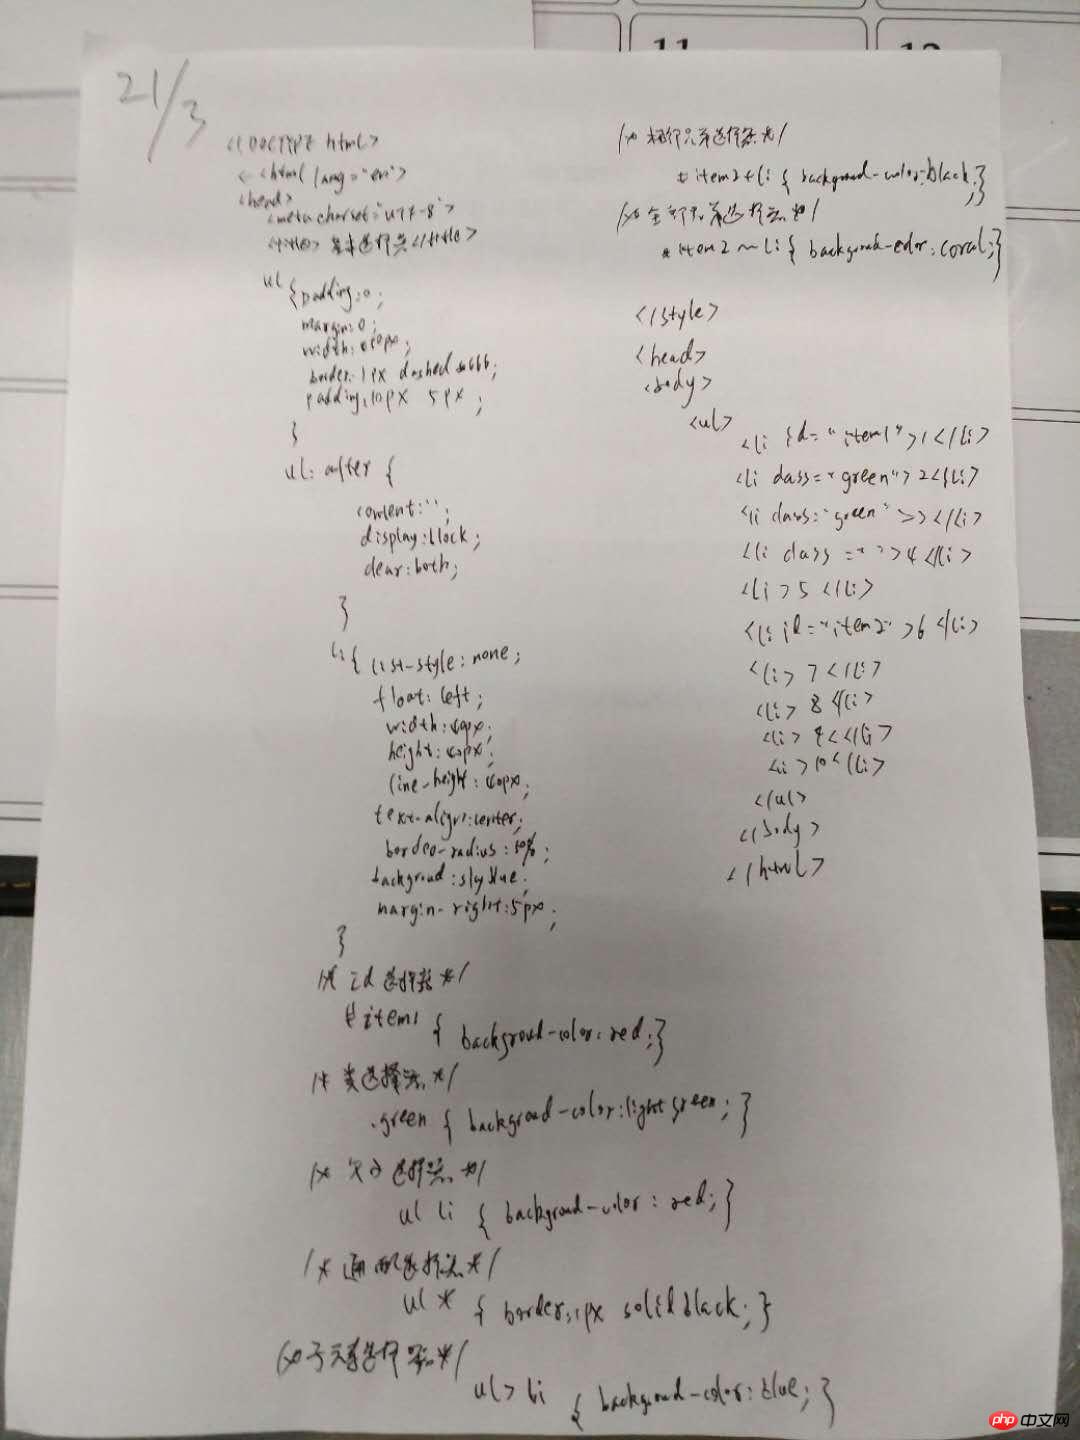 11
12
21/3
<!DOCTYPE html>
<html lang="en">
<head>
<meta charset="UTF-8">
<title>基本选择器</title>
ul {padding:0;
margin:0;
width:
border:1px dashed #666;
padding:10px 5px;
}
ul:after {
content:'';
display:block;
clear:both;
}
li{ list-style:none;
float:left;
width:40px;
height:40px;
line-height:40px;
text-align:center;
border-radius:50%;
backgroud:skyblue;
margin-right:5px;
}
/* id选择器*/
#item1 { backgroud-color:red;}
/* 类选择器*/
.green { backgroud-color:lightgreen;}
/* 选择器*/
ul li { backgroud-color:red;}
/*通配选择器*/
ul * { border:1px solid black;}
/*子 选择器*/
ul> li { backgroud-color:blue;}
/* 相邻兄弟选择器*/
#item2+li{ backgroud-color:black;}
/*全部兄弟选择器*/
#item2~li{ backgroud-color:coral;}
</style>
<head>
<body>
<ul>
<li id="item1">1</li>
<li class="green">2</li>
<li class="green">3</li>
<li class="">4</li>
<li>5</li>
<li id="item2">6</li>
<li>7</li>
<li>8</li>
<li>9<</li>
<li>10</li>
</ul>
</body>
</html>
php中文网